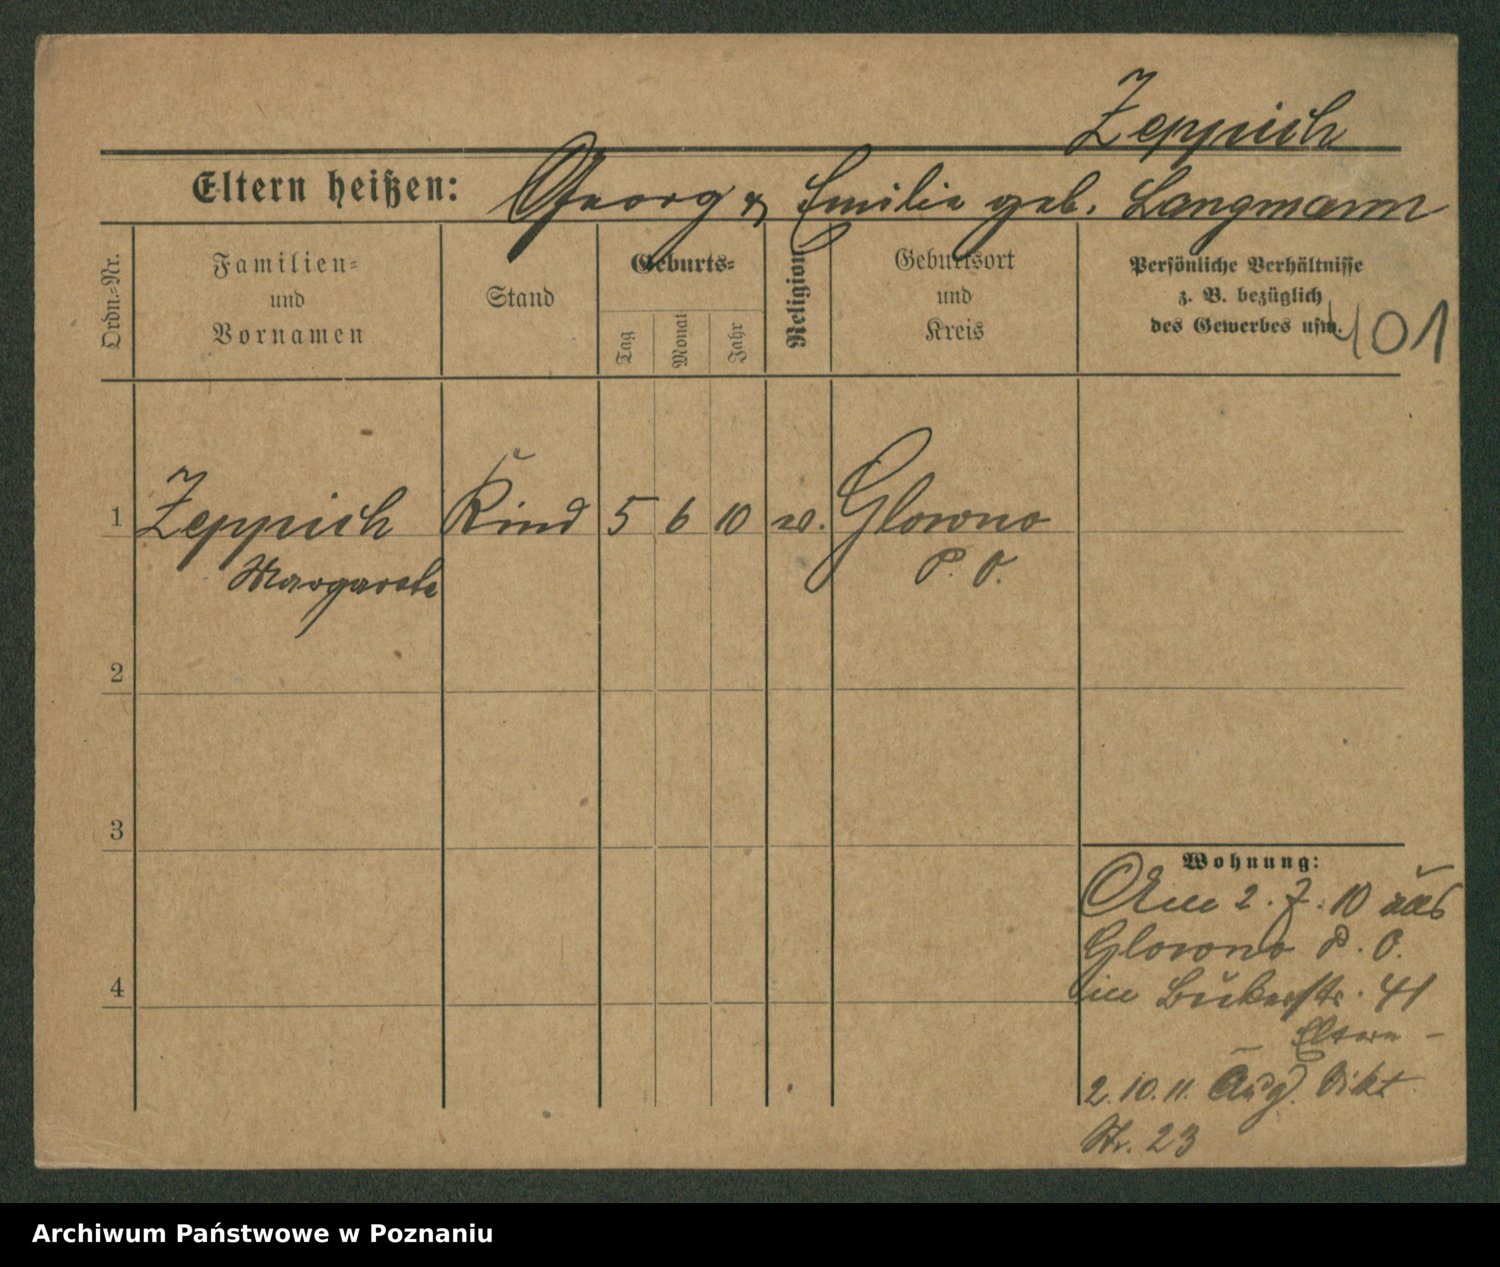 Zeppich
Eltern heißen: Georg & Emilie geb. Langmann
Ordn.-Nr.
Familien-
und
Vornamen
Stand
Geburts-
Tag
Monat
Jahr
Religion
Geburtsort
und
Kreis
Persönliche Verhältnisse
z. B. bezüglich
des Gewerbes usw.
401
1 Zeppich Kind 5 6 10 w. Glowno
Margarete P. O.
2
3
4
Wohnung:
Am 2. 7. 10 aus
Glowno P. O.
in Bukerstr. 41
Eltern -
2. 10. 11. Aug. Vikt
Str. 23
Archiwum Państwowe w Poznaniu